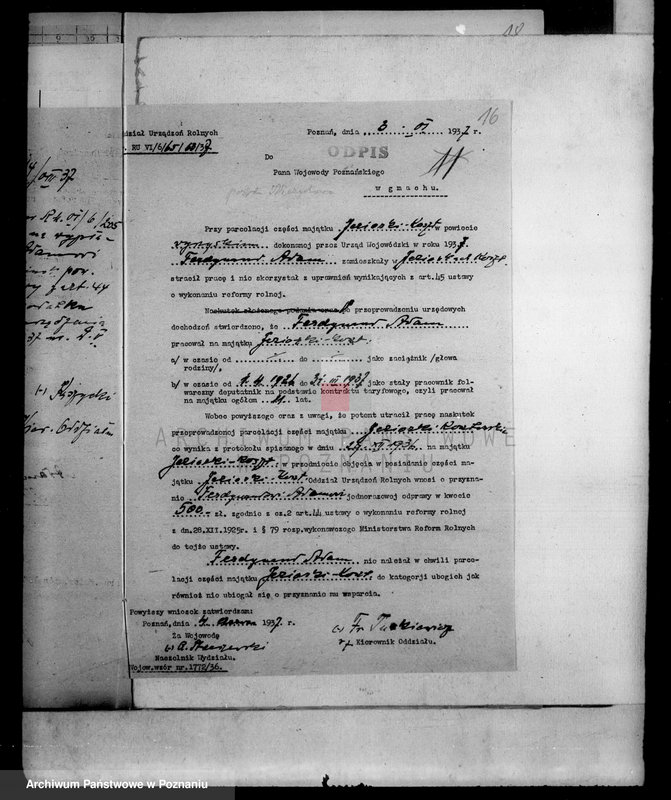 18
16
dział Urządzeń Rolnych
Poznań, dnia 3 VI 1937 r.
RU VI/6/65/63/37
ODPIS
Do
11
Pana Wojewody Poznańskiego
w gmachu.
Przy parcelacji części majątku Jeziorki-Koszt. w powiecie
wyrzyskim dokonanej przez Urząd Wojewódzki w roku 1937.
Ferdynand Adam zamieszkały w Jeziorkach Koszt.
stracił pracę i nie skorzystał z uprawnień wynikających z art.45 ustawy
o wykonaniu reformy rolnej.
Naskutek złożonego podania oraz Po przeprowadzeniu urzędowych
dochodzeń stwierdzono, że Ferdynand Adam
pracował na majątku Jeziorki-Koszt.
a/ w czasie od - do - jako zaciężnik /głowa
rodziny/,
b/ w czasie od 1.4.1926 do 31.III.1937 jako stały pracownik fol-
warczny deputatnik na podstawie kontraktu taryfowego, czyli pracował
na majątku ogółem 11 lat.
Wobec powyższego oraz z uwagi, że petent utracił pracę naskutek
przeprowadzonej parcelacji części majątku Jeziorki Kosztowskie
co wynika z protokółu spisanego w dniu 29 VII 1936 na majątku
Jeziorki-Koszt. w przedmiocie objęcia w posiadanie części ma-
jątku Jeziorki-Koszt Oddział Urządzeń Rolnych wnosi o przyzna-
nie Ferdynandowi Adamowi jednorazowej odprawy w kwocie
500.- zł. zgodnie z cz.2 art.44 ustawy o wykonaniu reformy rolnej
z dn.28.XII.1925r. i § 79 rozp.wykonawczego Ministerstwa Reform Rolnych
do tejże ustawy.
Ferdynand Adam nie należał w chwili parce-
lacji części majątku Jeziorki-Koszt. do kategorji ubogich jak
również nie ubiegał się o przyznanie mu wsparcia.
Powyższy wniosek zatwierdzam:
Poznań, dnia 4 czerwca 1937 r.
Za Wojewodę
Naczelnik Wydziału.
Kierownik Oddziału.
Wojew.wzór nr.1772/36.
ARCHIWUM PAŃSTWOWE
W POZNANIU
Archiwum Państwowe w Poznaniu